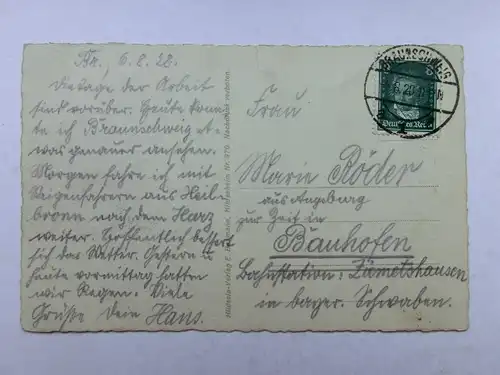 Br. 6.8.28.
die Tage der Arbeit
sind vorüber. Heute konn-
te ich Braunschweig et-
was genauer ansehen.
Morgen fahre ich mit
Reigenfahrern aus Heil-
bronn nach dem Harz
weiter. Hoffentlich bessert
sich das Wetter. Gestern u.
heute vormittag hatten
wir Regen. Viele
Grüße Dein Hans.
Nachdruck verboten.
BRAUNSCHWEIG
8
Deutsches Reich
Frau
Marie Röder
aus Augsburg
zur Zeit in
Bauhofen
Bahnstation: Ziemetshausen
in bayer. Schwaben.